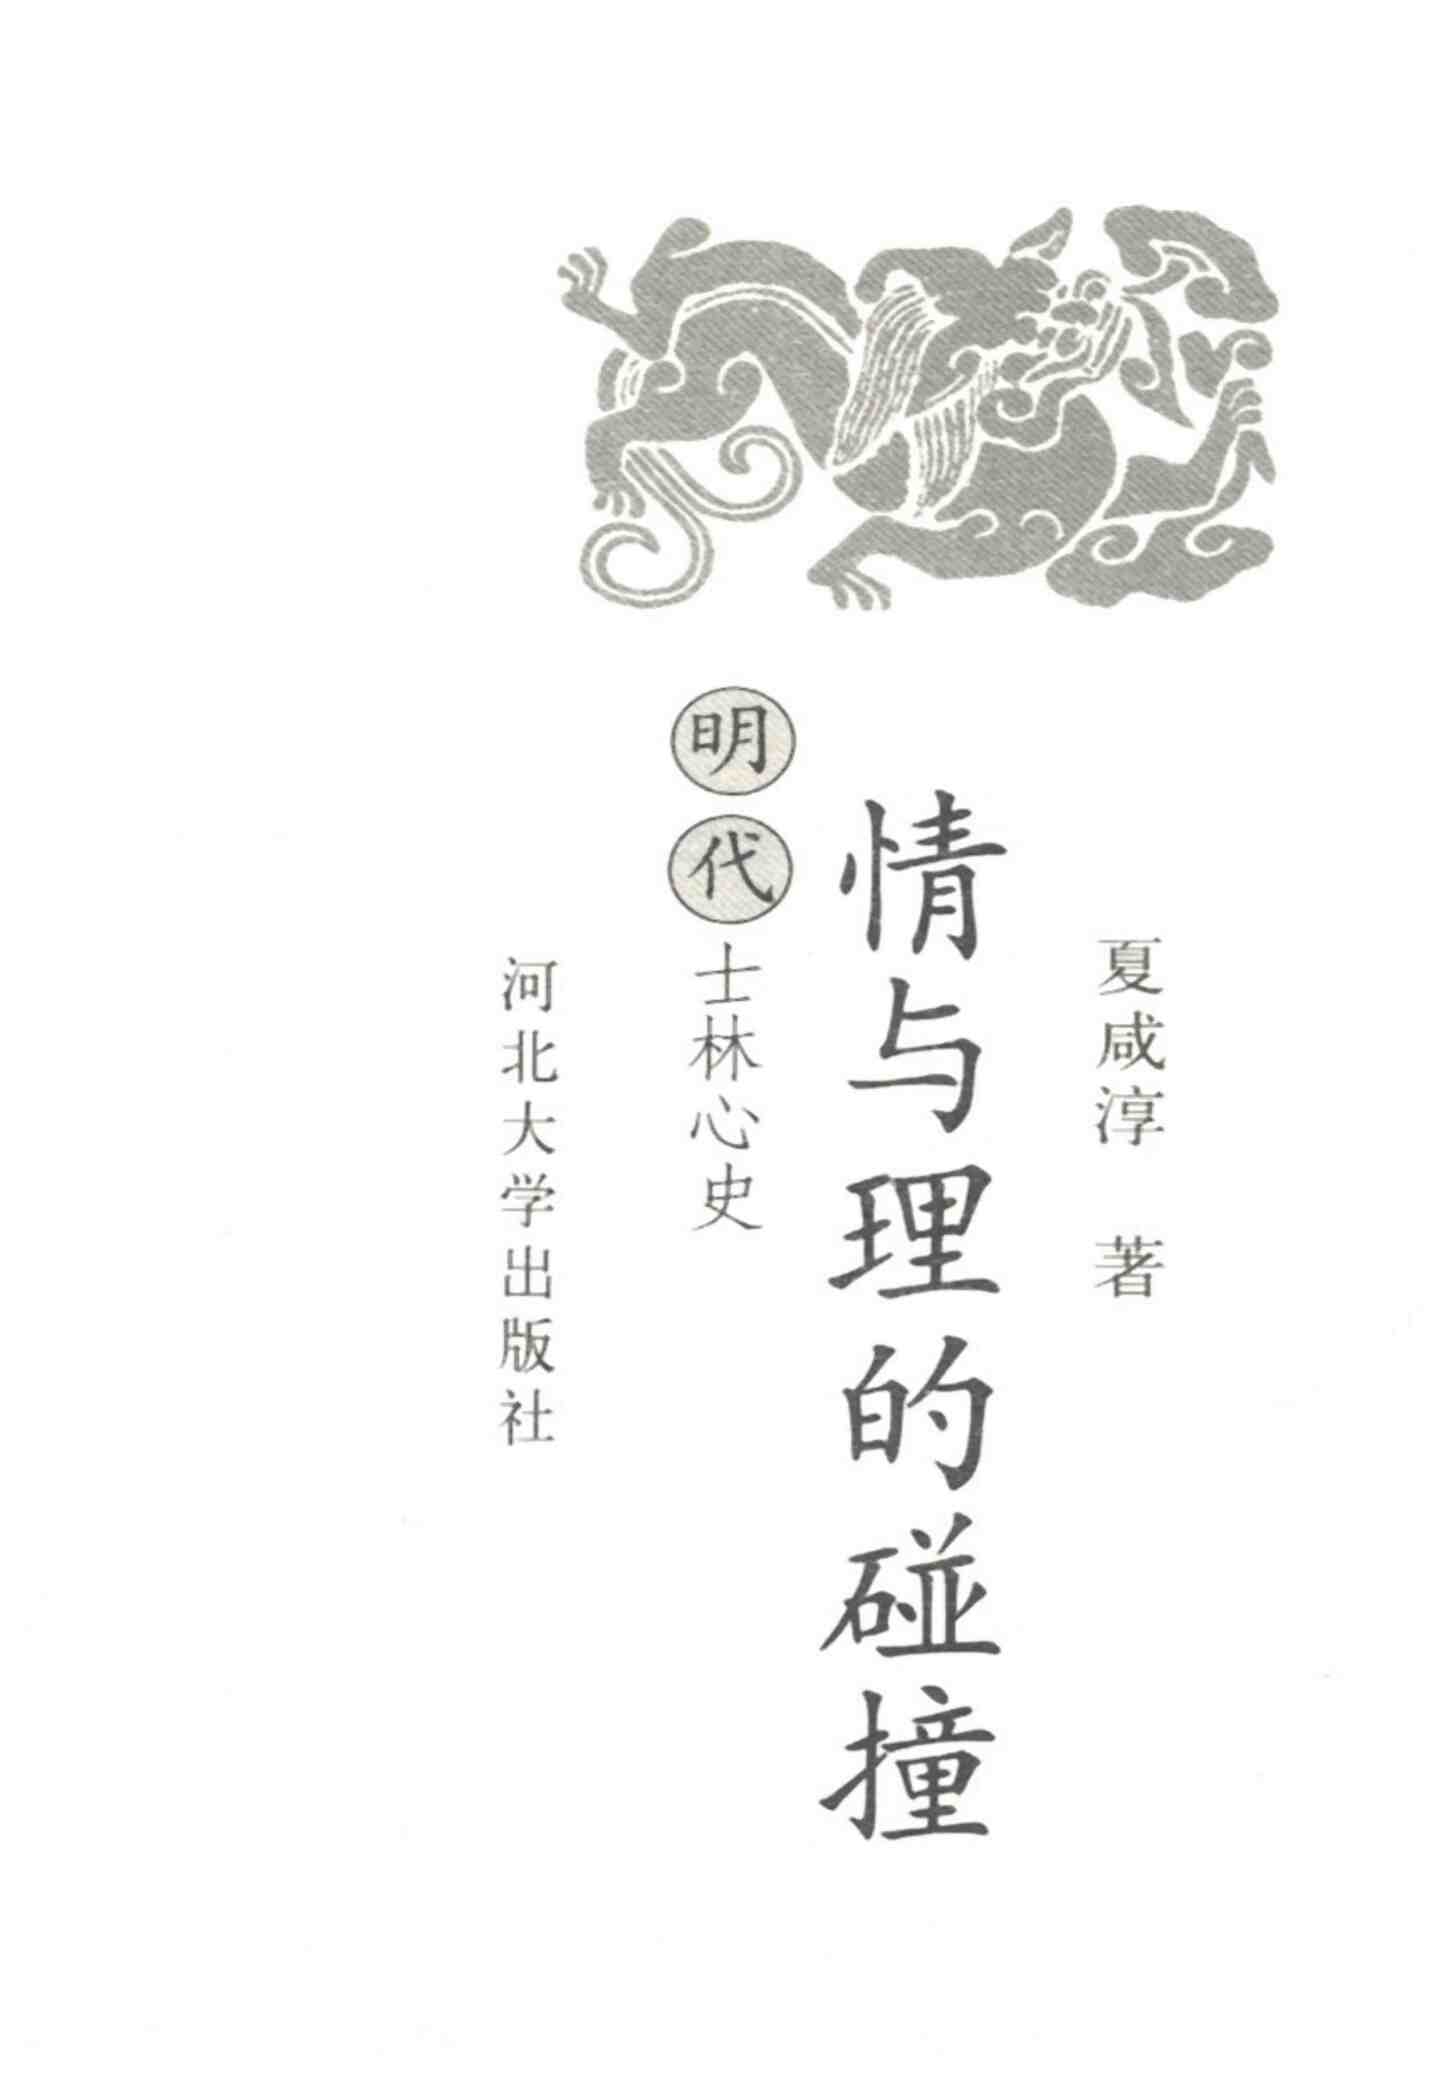 夏咸淳 著
情与理的碰撞
明代士林心史
河北大学出版社